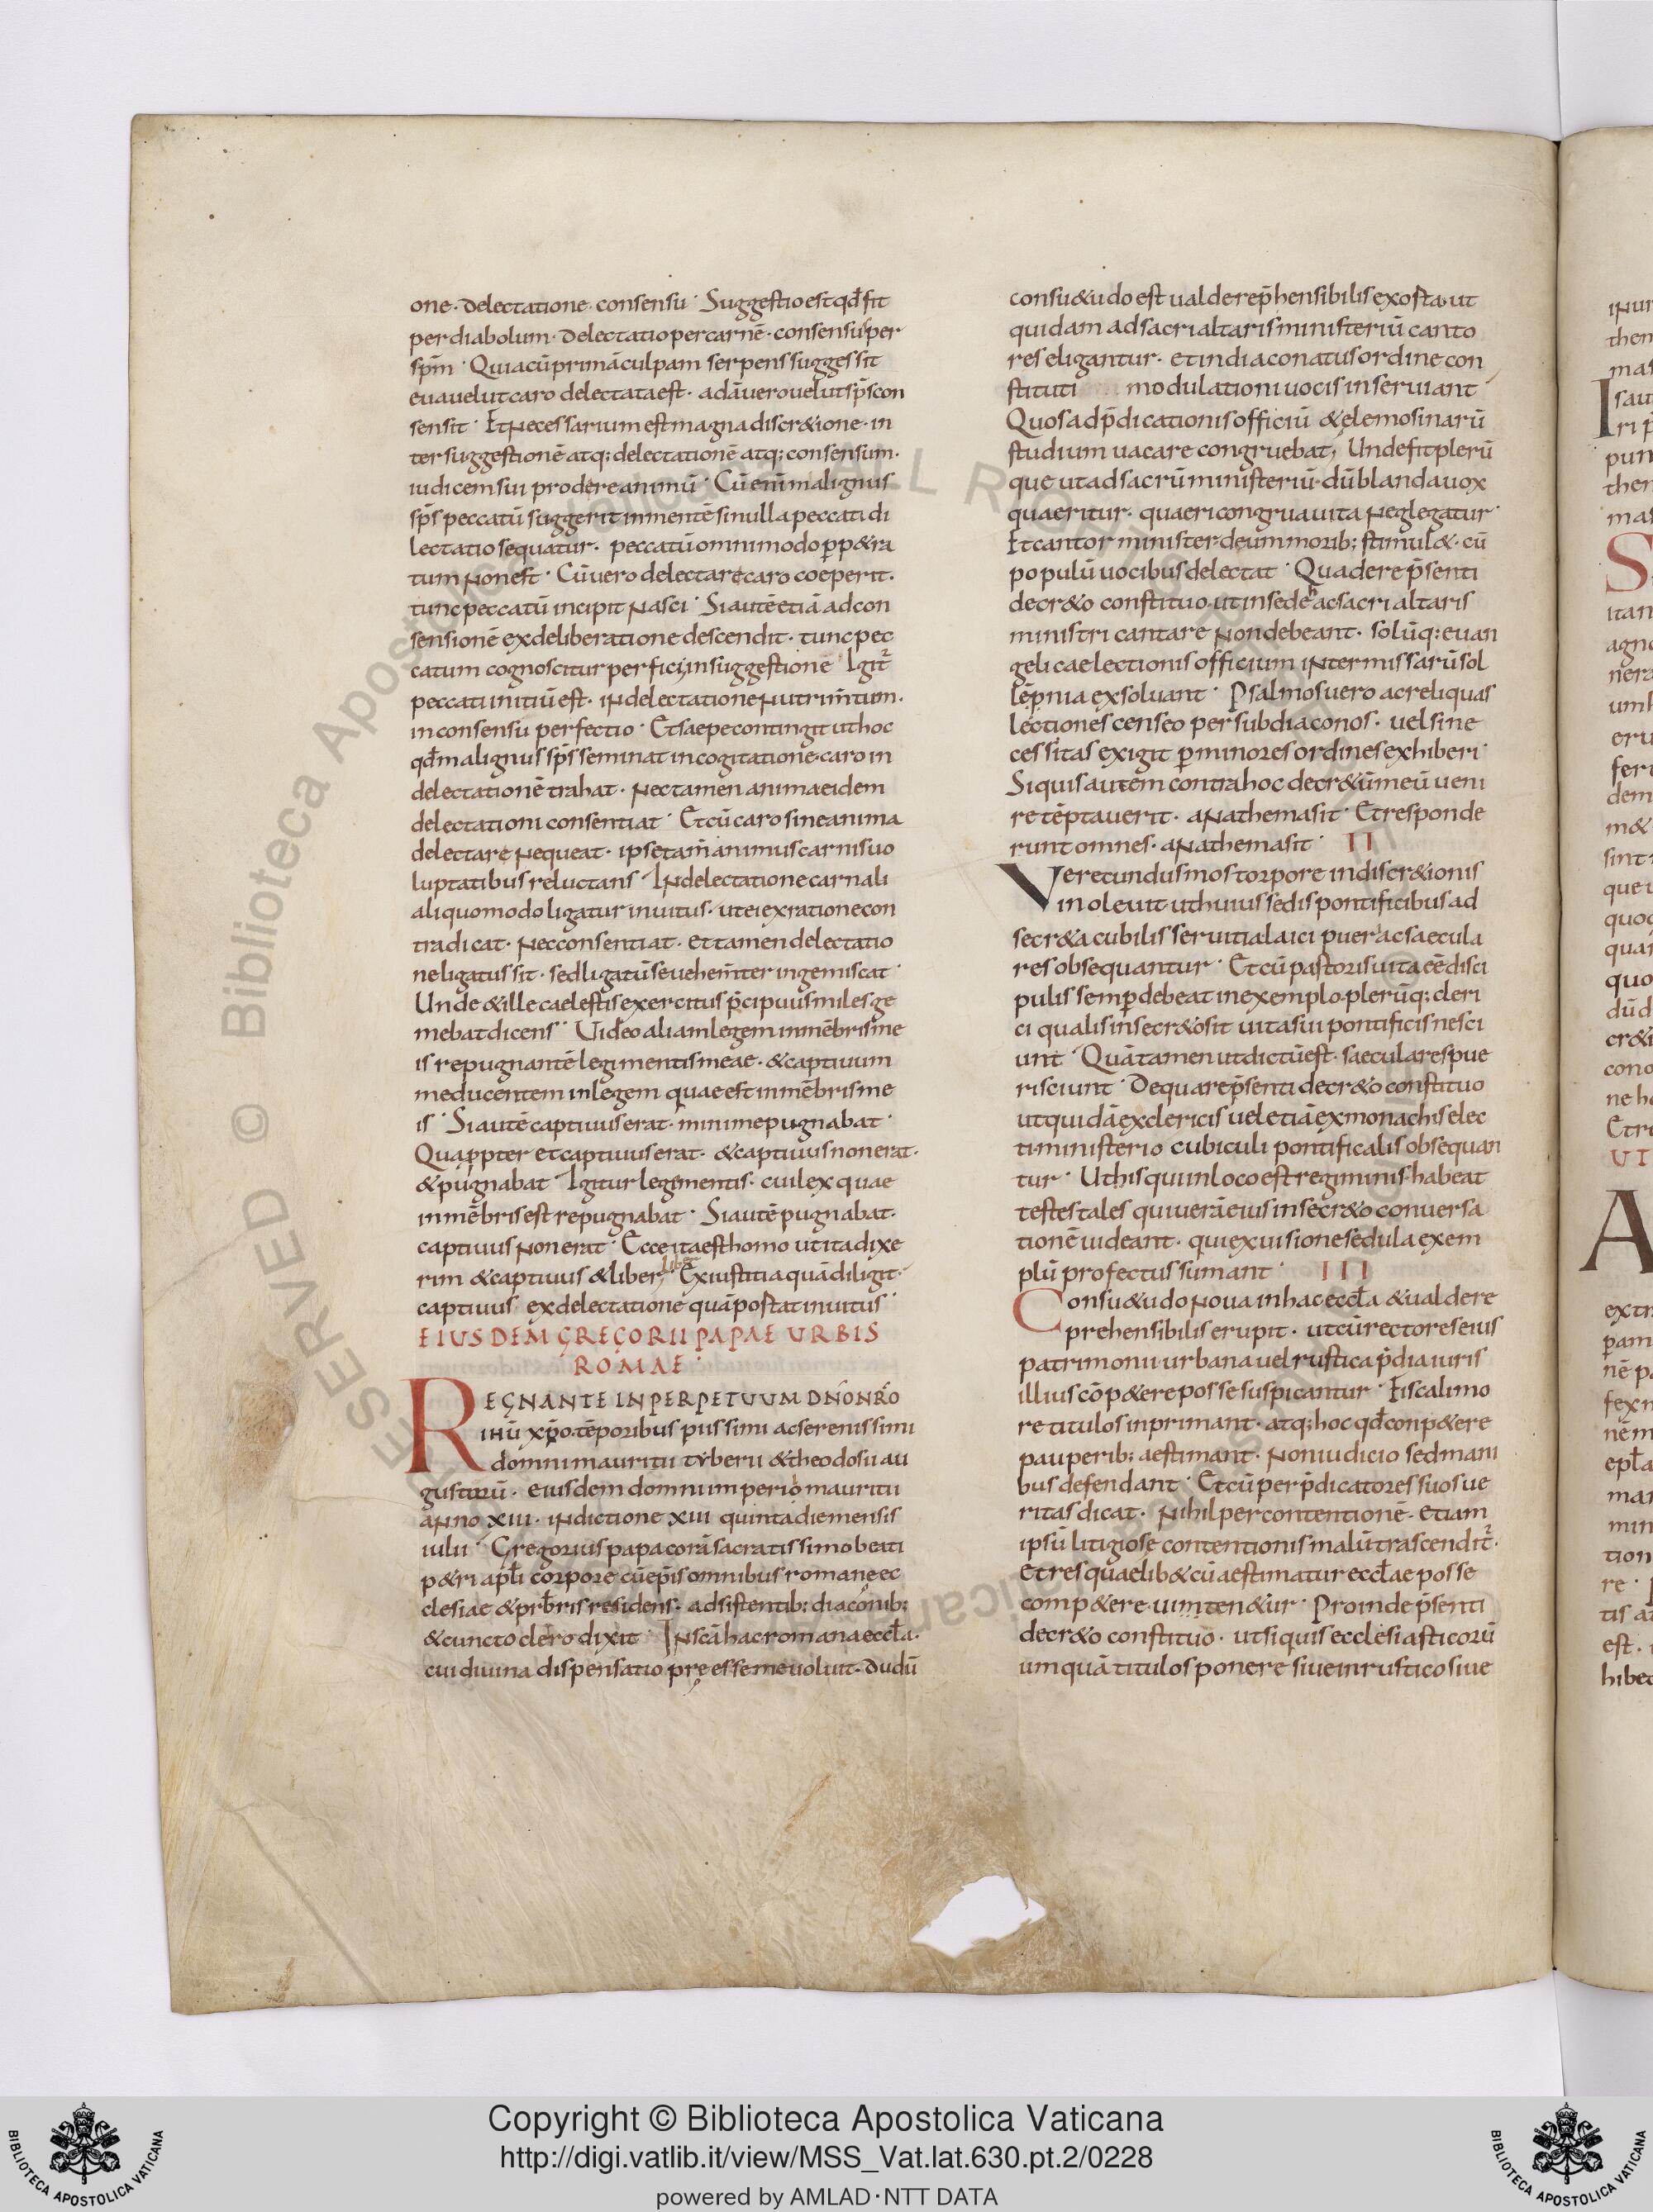 one. delectatione. consensu. Suggestio est qđ fit
per diabolum. Delectatio per carnē. consensus per
sp̄m. Quia cū primā culpam serpens suggessit
eva velut caro delectata est. adā vero velut sp̄s con
sensit. Et necessarium est magna discr&ione. in
ter suggestionē atq; delectationē atq; consensum.
iudicem sui prodere animū. Cū enim malignus
sp̄s peccatū suggerit in mente si nulla peccati di
lectatio sequatur. peccatū omnimodo p̱p&ra
tum non est. Cū vero delectare caro coeperit.
tunc peccatū incipit nasci. Si autē etiā ad con
sensionē ex deliberatione descendit. tunc pec
catum cognoscitur perfici; in suggestione Igit̄
peccati initiū est. in delectatione nutrim̄tum.
in consensu perfectio. Et saepe contingit ut hoc
qđ malignus sp̄s seminat in cogitatione. caro in
delectationē trahat. nec tamen anima eidem
delectationi consentiat. Et cū caro sine anima
delectare nequeat. ipse tam̄ animus carnis uo
luptatibus reluctans. In delectatione carnali
aliquo modo ligatur inuitus. ut ei ex ratione con
tradicat. nec consentiat. et tamen delectatio
ne ligatus sit. sed ligatū se uehem̄ter ingemiscat.
Unde & ille caelestis exercitus p̄cipuus miles ge
mebat dicens. Video aliam legem in mēbris me
is repugnantē legi mentis meae. & captiuum
me ducentem in legem quae est in mēbris me
is. Si autē captiuus erat. minime pugnabat.
Quappter et captiuus erat. & captiuus non erat.
& pugnabat Igitur lege mentis. cui lex quae
in mēbris est repugnabat. Si autē pugnabat.
captiuus non erat. Ecce ita est homo ut ita dixe
rim & captiuus & liber; liber Ex iustitia quā diligit.
captiuus ex delectatione quā postat inuitus.
EIUSDEM GREGORII PAPAE URBIS
ROMAE.
REGNANTE IN PERPETUUM DN̄O NR̄O
IHŪ XP̄O. tēporibus piissimi ac serenissimi
domni mauritii tyberii & theodosii au
gustorū. eiusdem domni imperio mauritii
anno xiii. indictione xiii quinta die mensis
iulii. Gregorius papa corā sacratissimo beati
p&ri apłi corpore cū ep̄is omnibus romane ec
clesiae & prƀris residens. adsistentib; diaconib;
& cuncto clero dixit. In scā hac romana eccła.
cui diuina dispensatio pręesse me uoluit. dudū
consu&udo est ualde rep̄hensibilis exorta ut
quidam ad sacri altaris ministeriū canto
res eligantur. et in diaconatus ordine con
stituti modulationi uocis inseruiant
Quos ad p̄dicationis officiū & elemosinarū
studium uacare congruebat; Unde fit plerū
que ut ad sacrū ministeriū. dū blanda uox
quaeritur. quaeri congrua uita neglegatur.
Et cantor minister deum morib; stimul&. cū
populū uocibus delectat. Qua de re p̄senti
decr&o constituo. ut in sede hac sacri altaris
ministri cantare non debeant. solūq; euan
gelicae lectionis officium inter missarū sol
lēpnia exsoluant. Psalmos uero ac reliquas
lectiones censeo per subdiaconos. uel si ne
cessitas exigit p̱ minores ordines exhiberi.
Si quis autem contra hoc decr&ū meū ueni
re tēptauerit. anathema sit. Et responde
runt omnes. anathema sit. II
Verecundus mos torpore indiscr&ionis
inoleuit ut huius sedis pontificibus ad
secr&a cubilis seruitia laici pueri ac saecula
res obsequantur. Et cū pastoris uita eē disci
pulis semp̱ debeat in exemplo. plerūq; cleri
ci qualis in secr&o sit uita sui pontificis nesci
unt. Quā tamen ut dictū est. saeculares pue
ri sciunt. De qua re p̄senti decr&o constituo
ut quidā ex clericis uel etiā ex monachis elec
ti ministerio cubiculi pontificalis obsequan
tur. Ut his qui in loco est regiminis. habeat
testes tales qui uerā eius in secr&o conuersa
tionē uideant. qui ex uisione sedula exem
plū profectus sumant. III
Consu&udo noua in hac eccła & ualde re
prehensibilis erupit. ut cū rectores eius
patrimonii urbana uel rustica p̄dia iuris
illius cōp&ere posse suspicantur. Fiscali mo
re titulos inprimant. atq; hoc qđ conp&ere
pauperib; aestimant. non iudicio sed mani
bus defendant. Et cū per p̄dicatores suos ue
ritas dicat. nihil per contentionē. etiam
ipsū litigiose contentionis malū trascendit̄.
et res quaelib& cū aestimatur eccłae posse
comp&ere. ui inten&ur. Proinde p̄senti
decr&o constituo. ut si quis ecclesiasticorū
umquā titulos ponere siue in rustico siue
Copyright © Biblioteca Apostolica Vaticana
http://digi.vatlib.it/view/MSS_Vat.lat.630.pt.2/0228
powered by AMLAD·NTT DATA